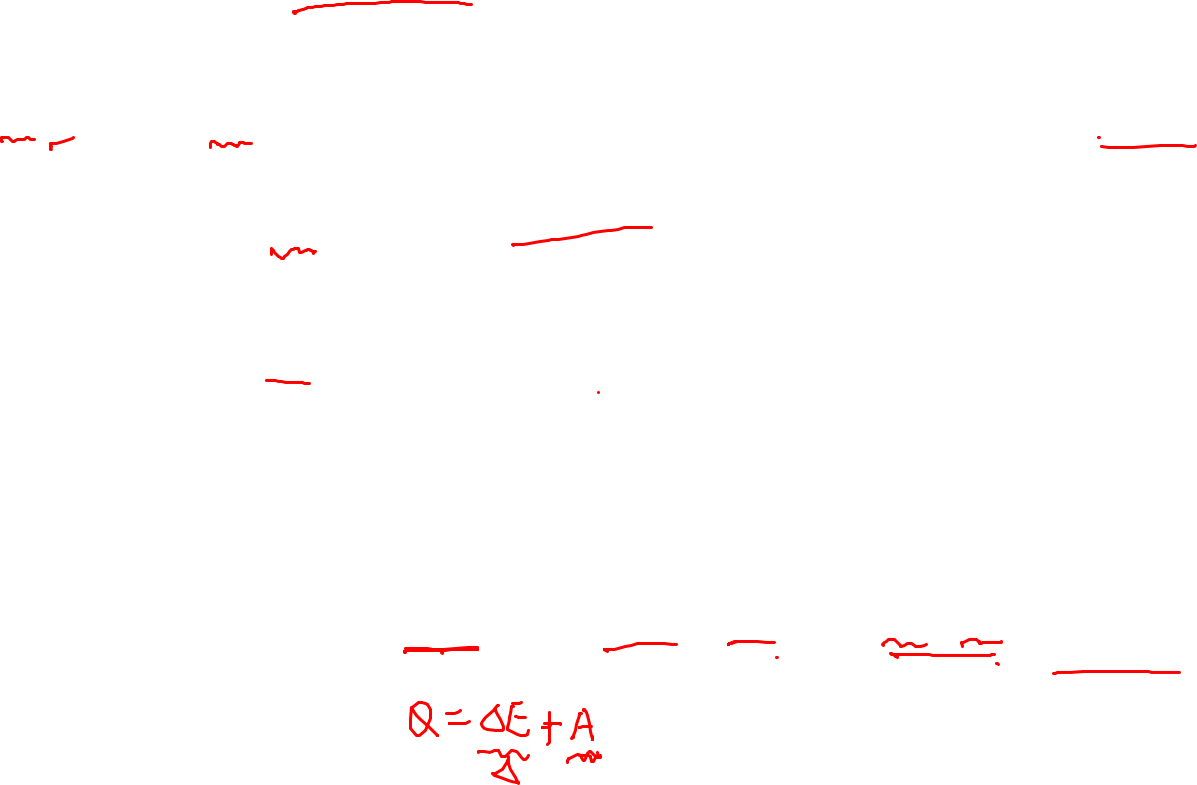 Q = ΔE + A
Δ